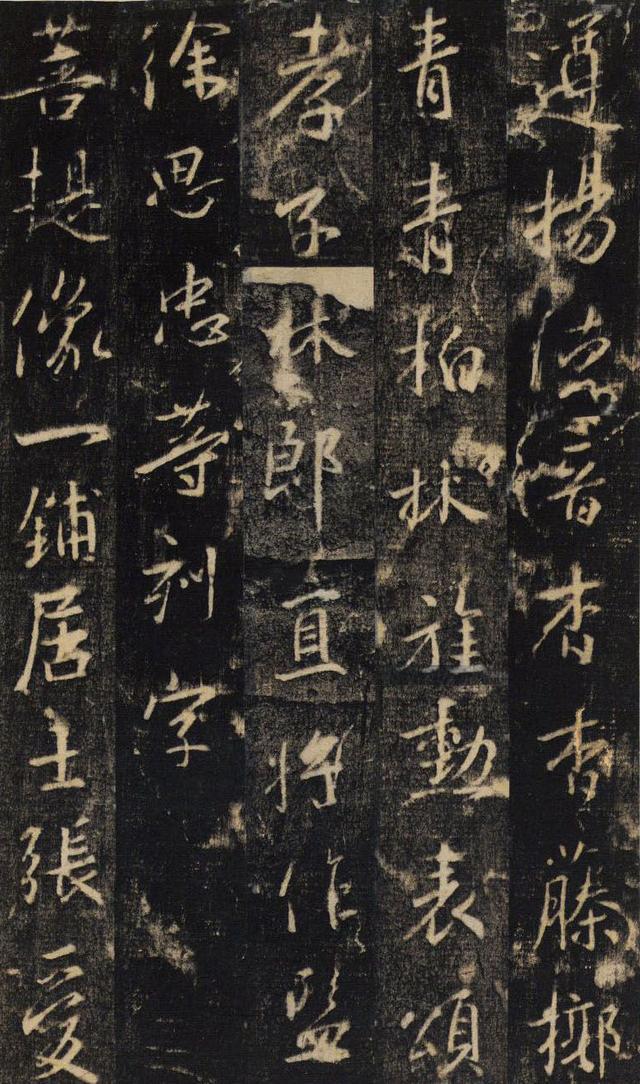 遵揚德音杳杳藤槨
青青柏林旌勳表頌
孝子林郎直將作監
徐思忠等刻字
菩提像一鋪居士張愛